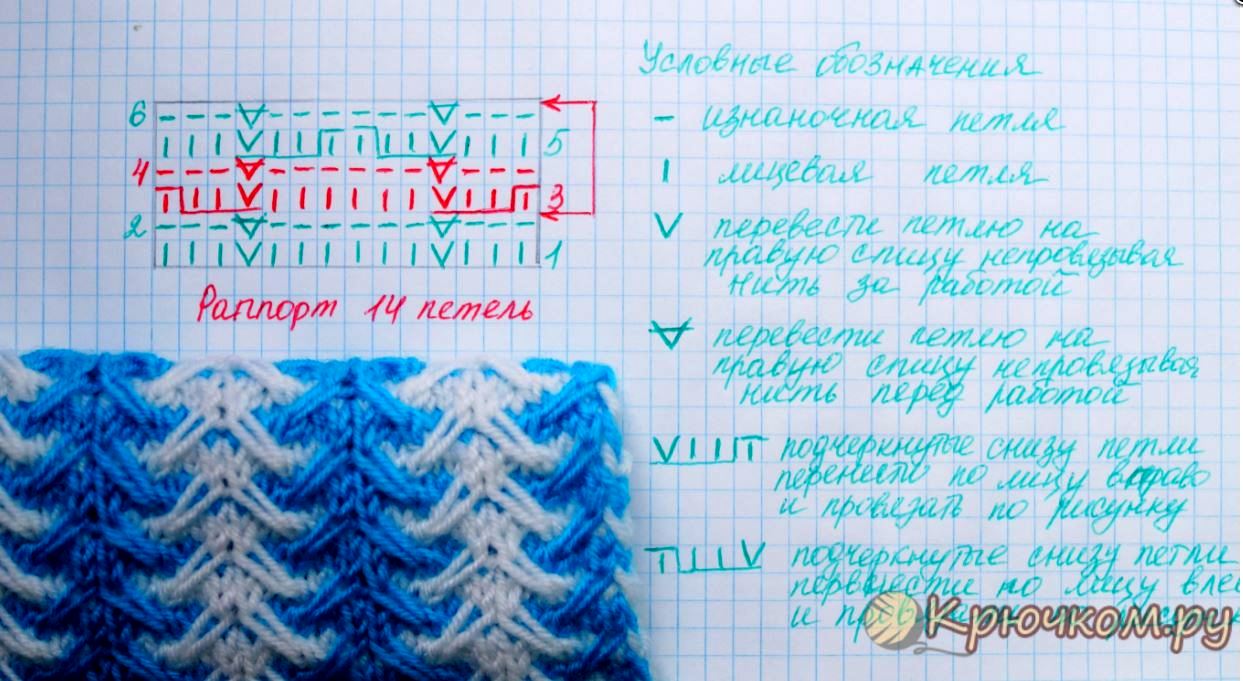 6
5
4
3
2
1
Раппорт 14 петель
Условные обозначения
– изнаночная петля
I лицевая петля
V перевести петлю на
правую спицу непровязывая
нить за работой
перевести петлю на
правую спицу непровязывая
нить перед работой
подчеркнутые снизу петли
перенести по лицу вправо
и провязать по рисунку
подчеркнутые снизу петли
перенести по лицу
и
Крючком.ру